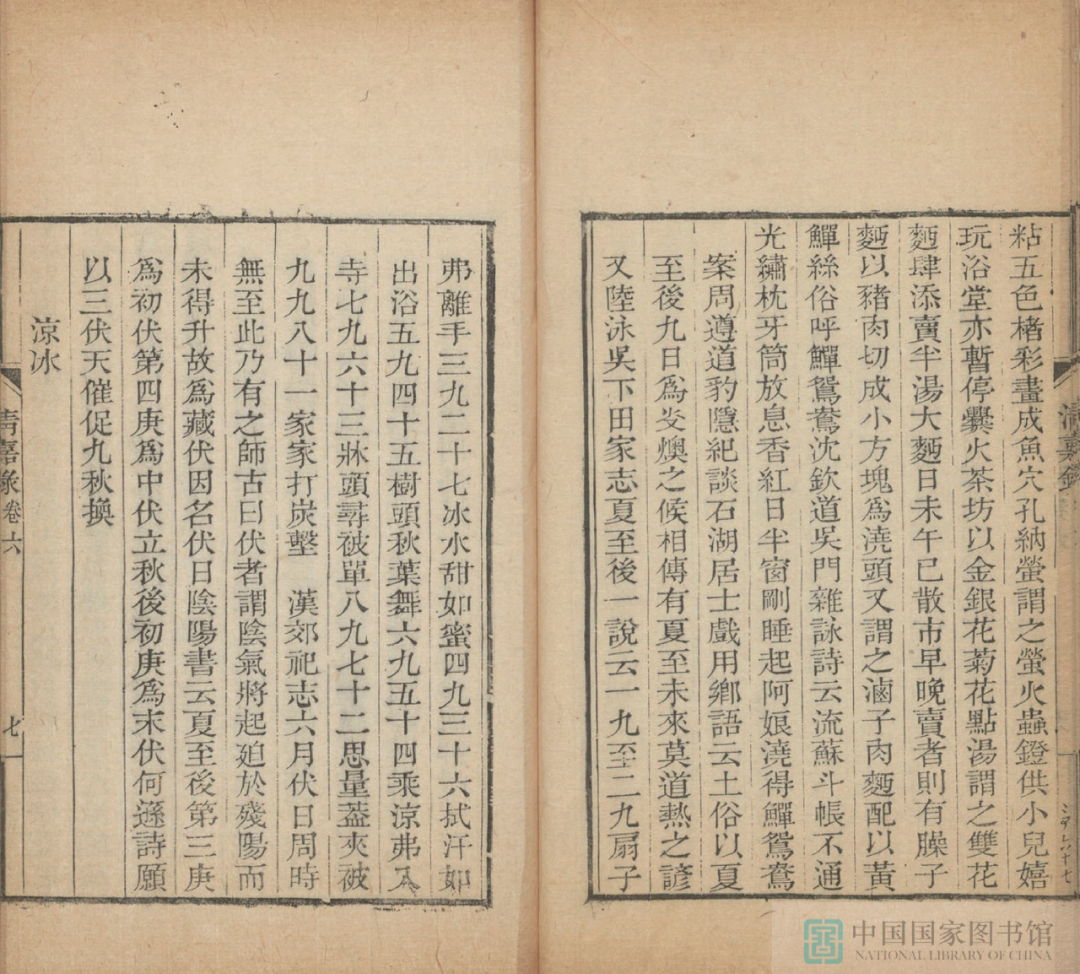 粘五色楮彩畫成魚穴孔納螢謂之螢火蟲鐙供小兒嬉
玩浴堂亦暫停爨火茶坊以金銀花菊花點湯謂之雙花
麫肆添賣半湯大麫日未午已散市早晚賣者則有臊子
麫以豬肉切成小方塊爲澆頭又謂之滷子肉麫配以黃
鱓絲俗呼鱓鴛鴦沈欽道吳門雜詠詩云流蘇斗帳不通
光繡枕牙筒放息香紅日半窗剛睡起阿娘澆得鱓鴛鴦
案周遵道豹隱紀談石湖居士戲用鄉語云土俗以夏
至後九日爲炎燠之候相傳有夏至未來莫道熱之諺
又陸泳吳下田家志夏至後一說云一九至二九扇子
弗離手三九二十七冰水甜如蜜四九三十六拭汗如
出浴五九四十五樹頭秋葉舞六九五十四乘涼弗入
寺七九六十三牀頭尋被單八九七十二思量蓋夾被
九九八十一家家打炭墼 漢郊祀志六月伏日周時
無至此乃有之師古曰伏者謂陰氣將起廹於殘陽而
未得升故爲藏伏因名伏日陰陽書云夏至後第三庚
爲初伏第四庚爲中伏立秋後初庚爲末伏何遜詩願
以三伏天催促九秋換
涼冰
清嘉錄卷六
七
中国国家图书馆
NATIONAL LIBRARY OF CHINA